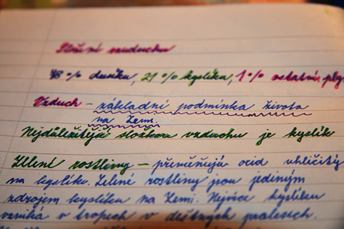 Složení vzduchu
78 % dusíku, 21 % kyslíku, 1 % ostatní plyny
Vzduch - základní podmínka života
na Zemi.
Nejdůležitější složkou vzduchu je kyslík
Zelené rostliny - přeměňují oxid uhličitý
na kyslík. Zelené rostliny jsou jediným
zdrojem kyslíku na Zemi. Nejvíce kyslíku
vzniká v tropech v deštných pralesích.